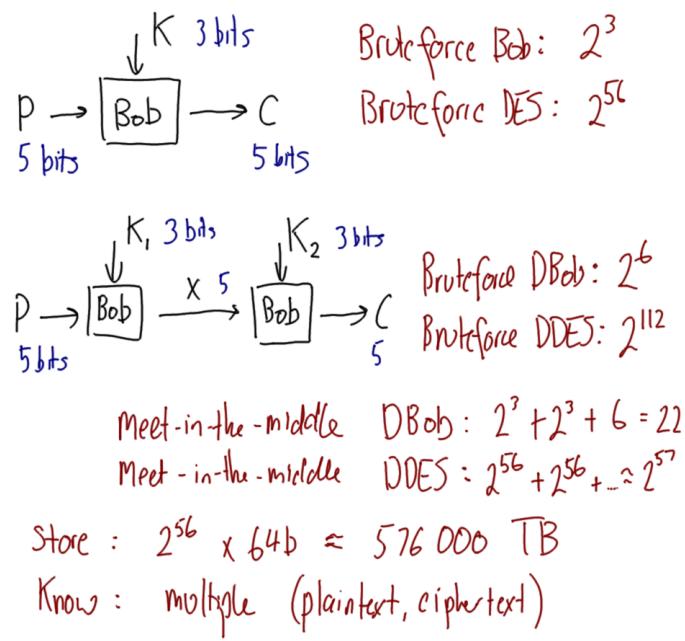 K 3 bits
P → Bob → C
5 bits 5 bits
Bruteforce Bob: 2^3
Bruteforce DES: 2^56
K1 3 bits K2 3 bits
P → Bob → X 5 → Bob → C
5 bits 5
Bruteforce DBob: 2^6
Bruteforce DDES: 2^112
Meet-in-the-middle DBob: 2^3 + 2^3 + 6 = 22
Meet-in-the-middle DDES: 2^56 + 2^56 + ... ≈ 2^57
Store: 2^56 x 64b ≈ 576 000 TB
Know: multiple (plaintext, ciphertext)